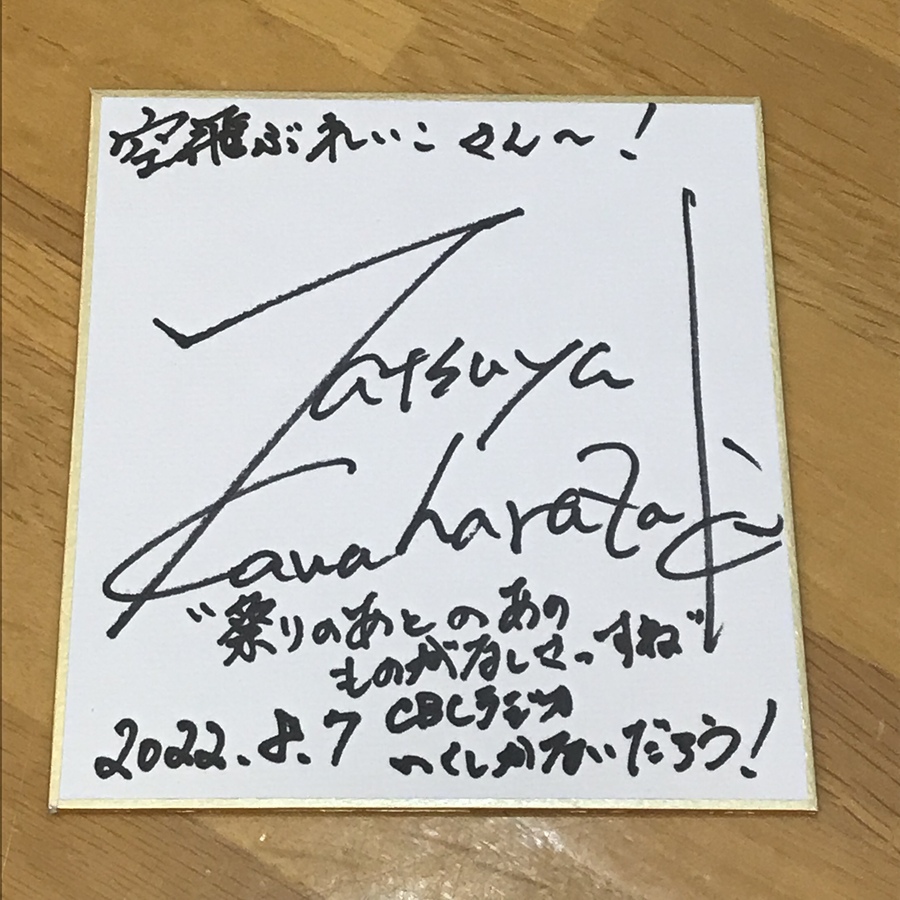 空飛ぶれいこさん〜!
Tatsuya
Kawaharazaki
"祭りのあとのあの
ものがなしさっすね"
2022.8.7
CBCラジオ
いくしかないだろう!